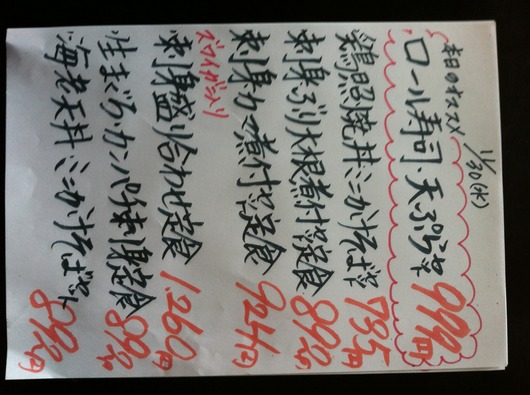 本日のオススメ 11/30(水)
ロール寿司・天ぷら 990円
鶏照焼丼ミニかけそば 735円
刺身ぶり大根煮付定食 890
刺身カニ煮付定食 924円
ズワイガニ入り
刺身盛り合わせ定食 1,260円
生まぐろ・カンパチ刺身定食 890
海老天丼ミニかけそばセット 890円